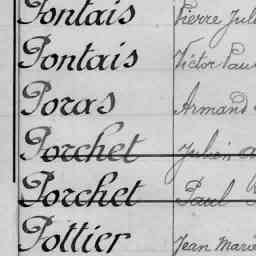 Pontais Pierre Jule
Pontais Victor Pau
Poras Armand
Porchet Julien
Porchet Paul
Pottier Jean Marie